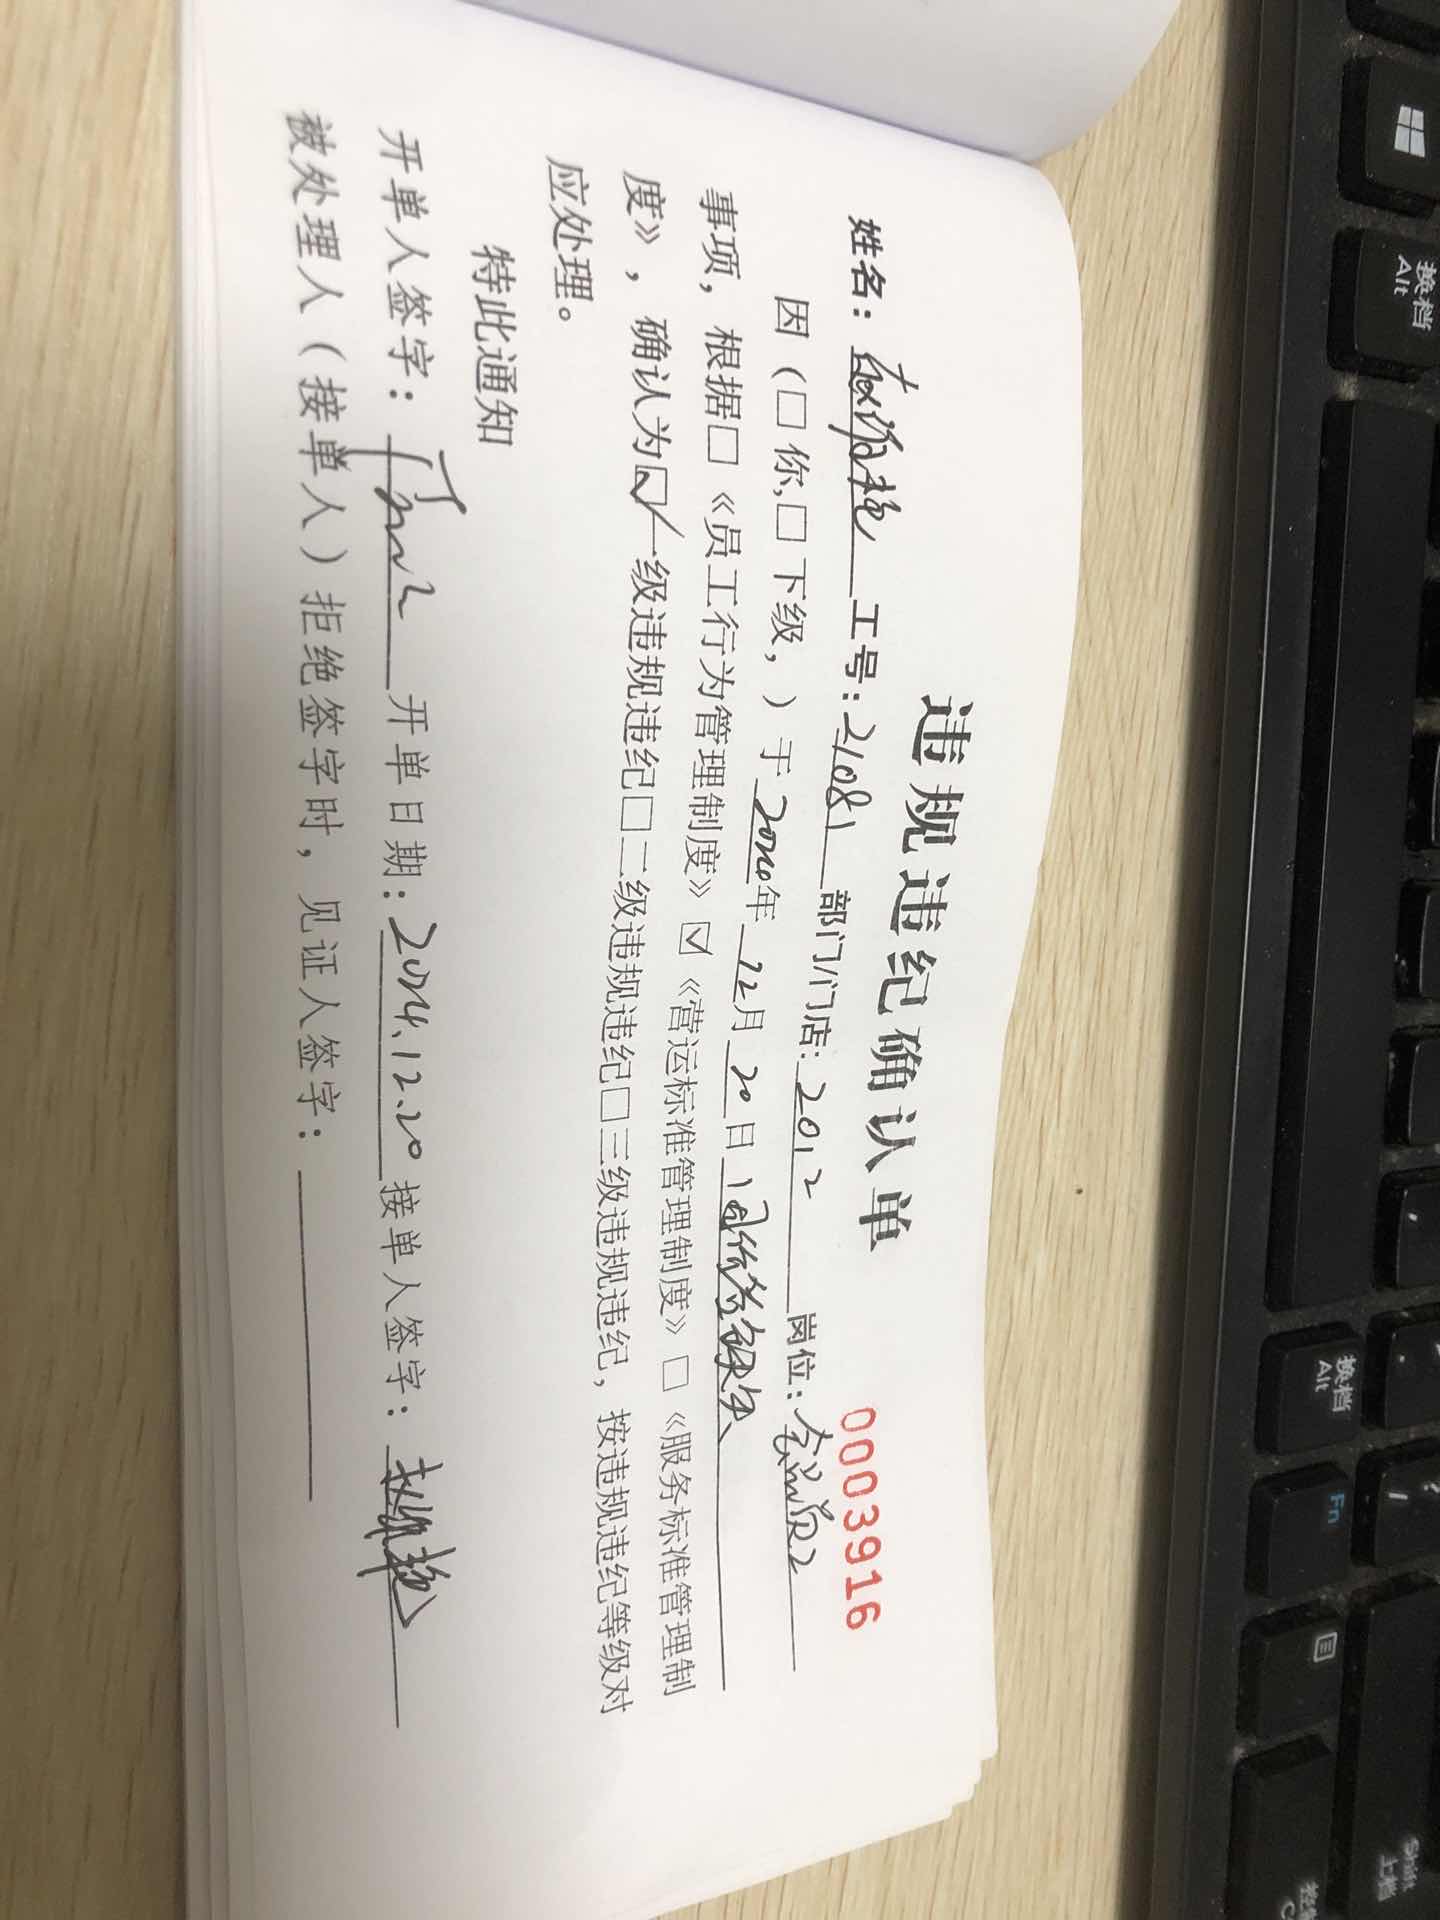 违规违纪确认单
0003916
姓名： 工号：21081 部门/门店：2012 岗位：
因（□你,□下级，）于 年12月20日
事项，根据□《员工行为管理制度》☑《营运标准管理制度》□《服务标准管理制
度》，确认为☑一级违规违纪□二级违规违纪□三级违规违纪，按违规违纪等级对
应处理。
特此通知
开单人签字： 开单日期：2024.12.20 接单人签字：
被处理人（接单人）拒绝签字时，见证人签字：
换档
Alt
换档
Alt
Fn
Shift
上档